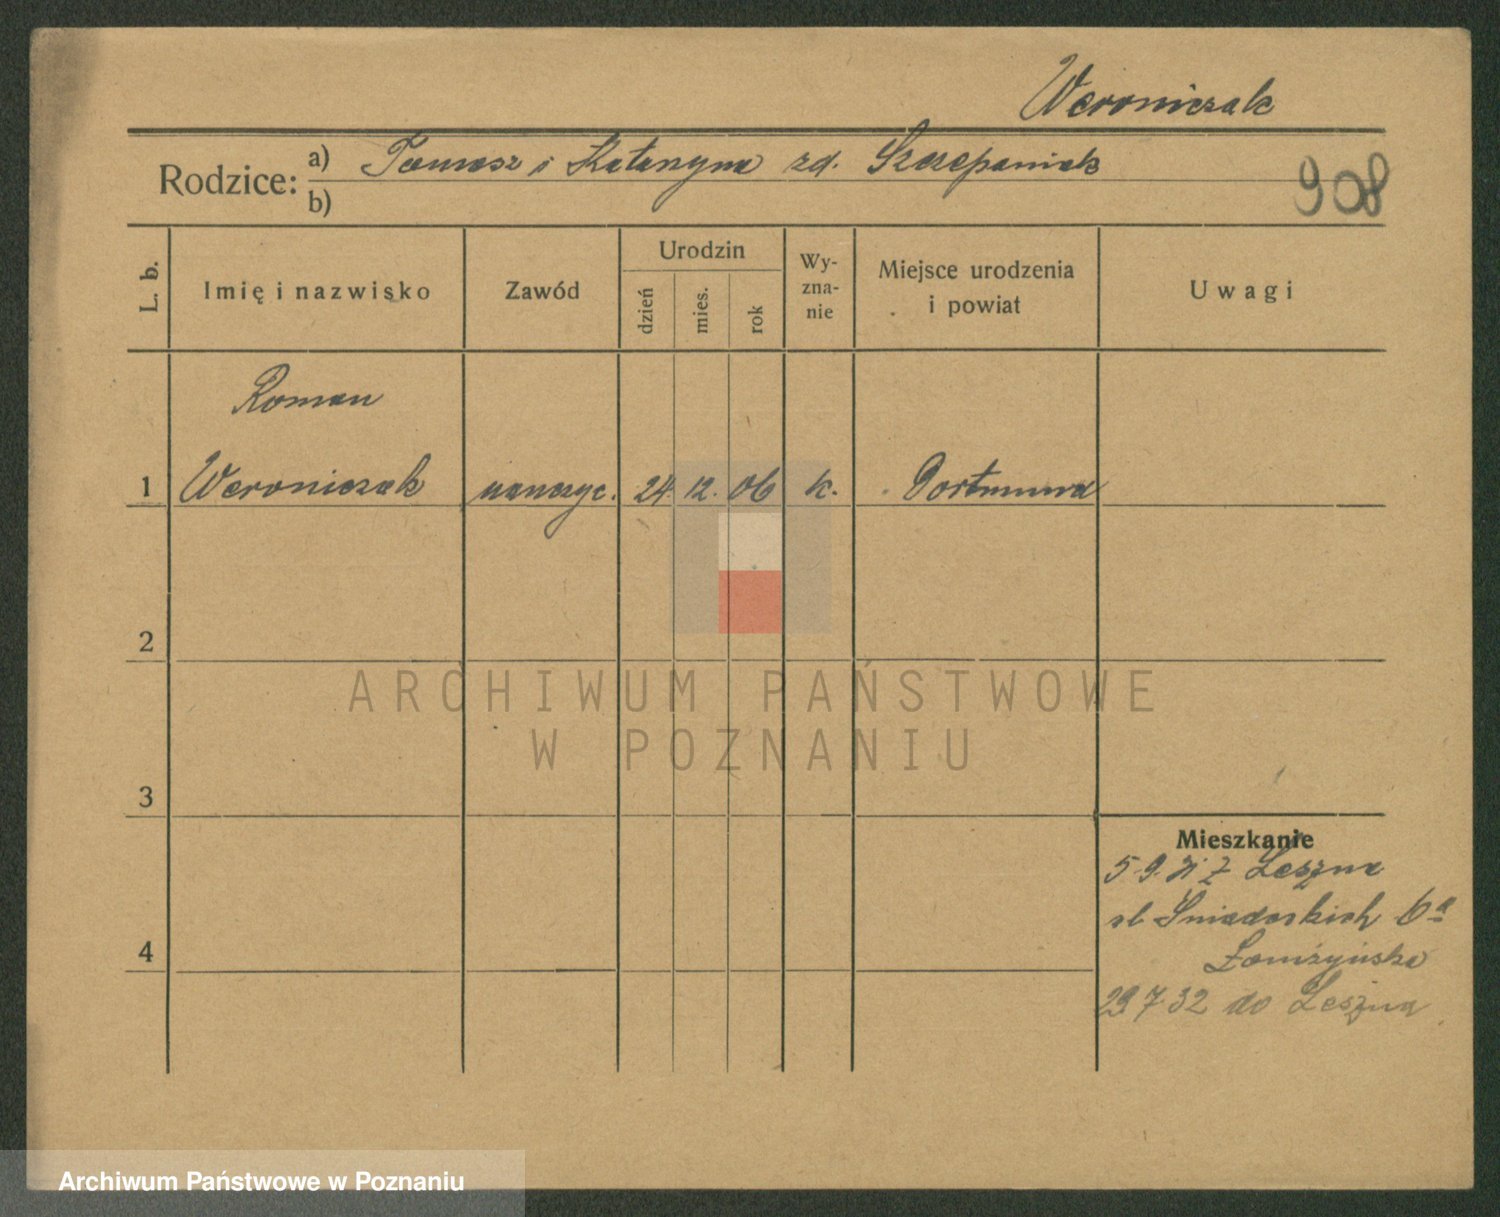 Weroniczak
Rodzice: a) Tomasz i Katarzyna zd. Szczepaniak
b)
908
L. b.
Imię i nazwisko
Zawód
Urodzin
dzień
mies.
rok
Wy-
zna-
nie
Miejsce urodzenia
i powiat
Uwagi
Roman
1 Weroniczak nauczyc. 24. 12. 06 k. Dortmund
2
ARCHIWUM PAŃSTWOWE
W POZNANIU
3
4
Mieszkanie
5.9.31 z Leszna
ul. Śniadeckich 6a
Łomżyńska
29 7 32 do Leszna
Archiwum Państwowe w Poznaniu